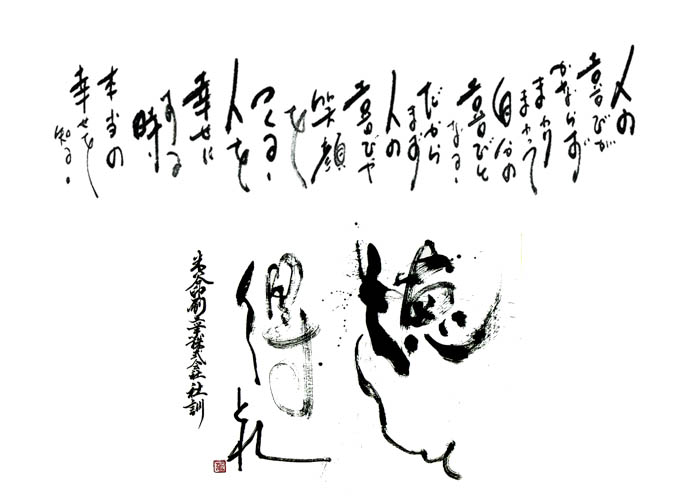 人の
喜びが
かならず
まわり
まわって
自分の
喜びと
なる。
だから
まず
人の
喜びや
笑顔
を
つくる。
人を
幸せに
する
時、
本当の
幸せを
知る。
徳し
得
とれ
光谷印刷工業株式会社 社訓